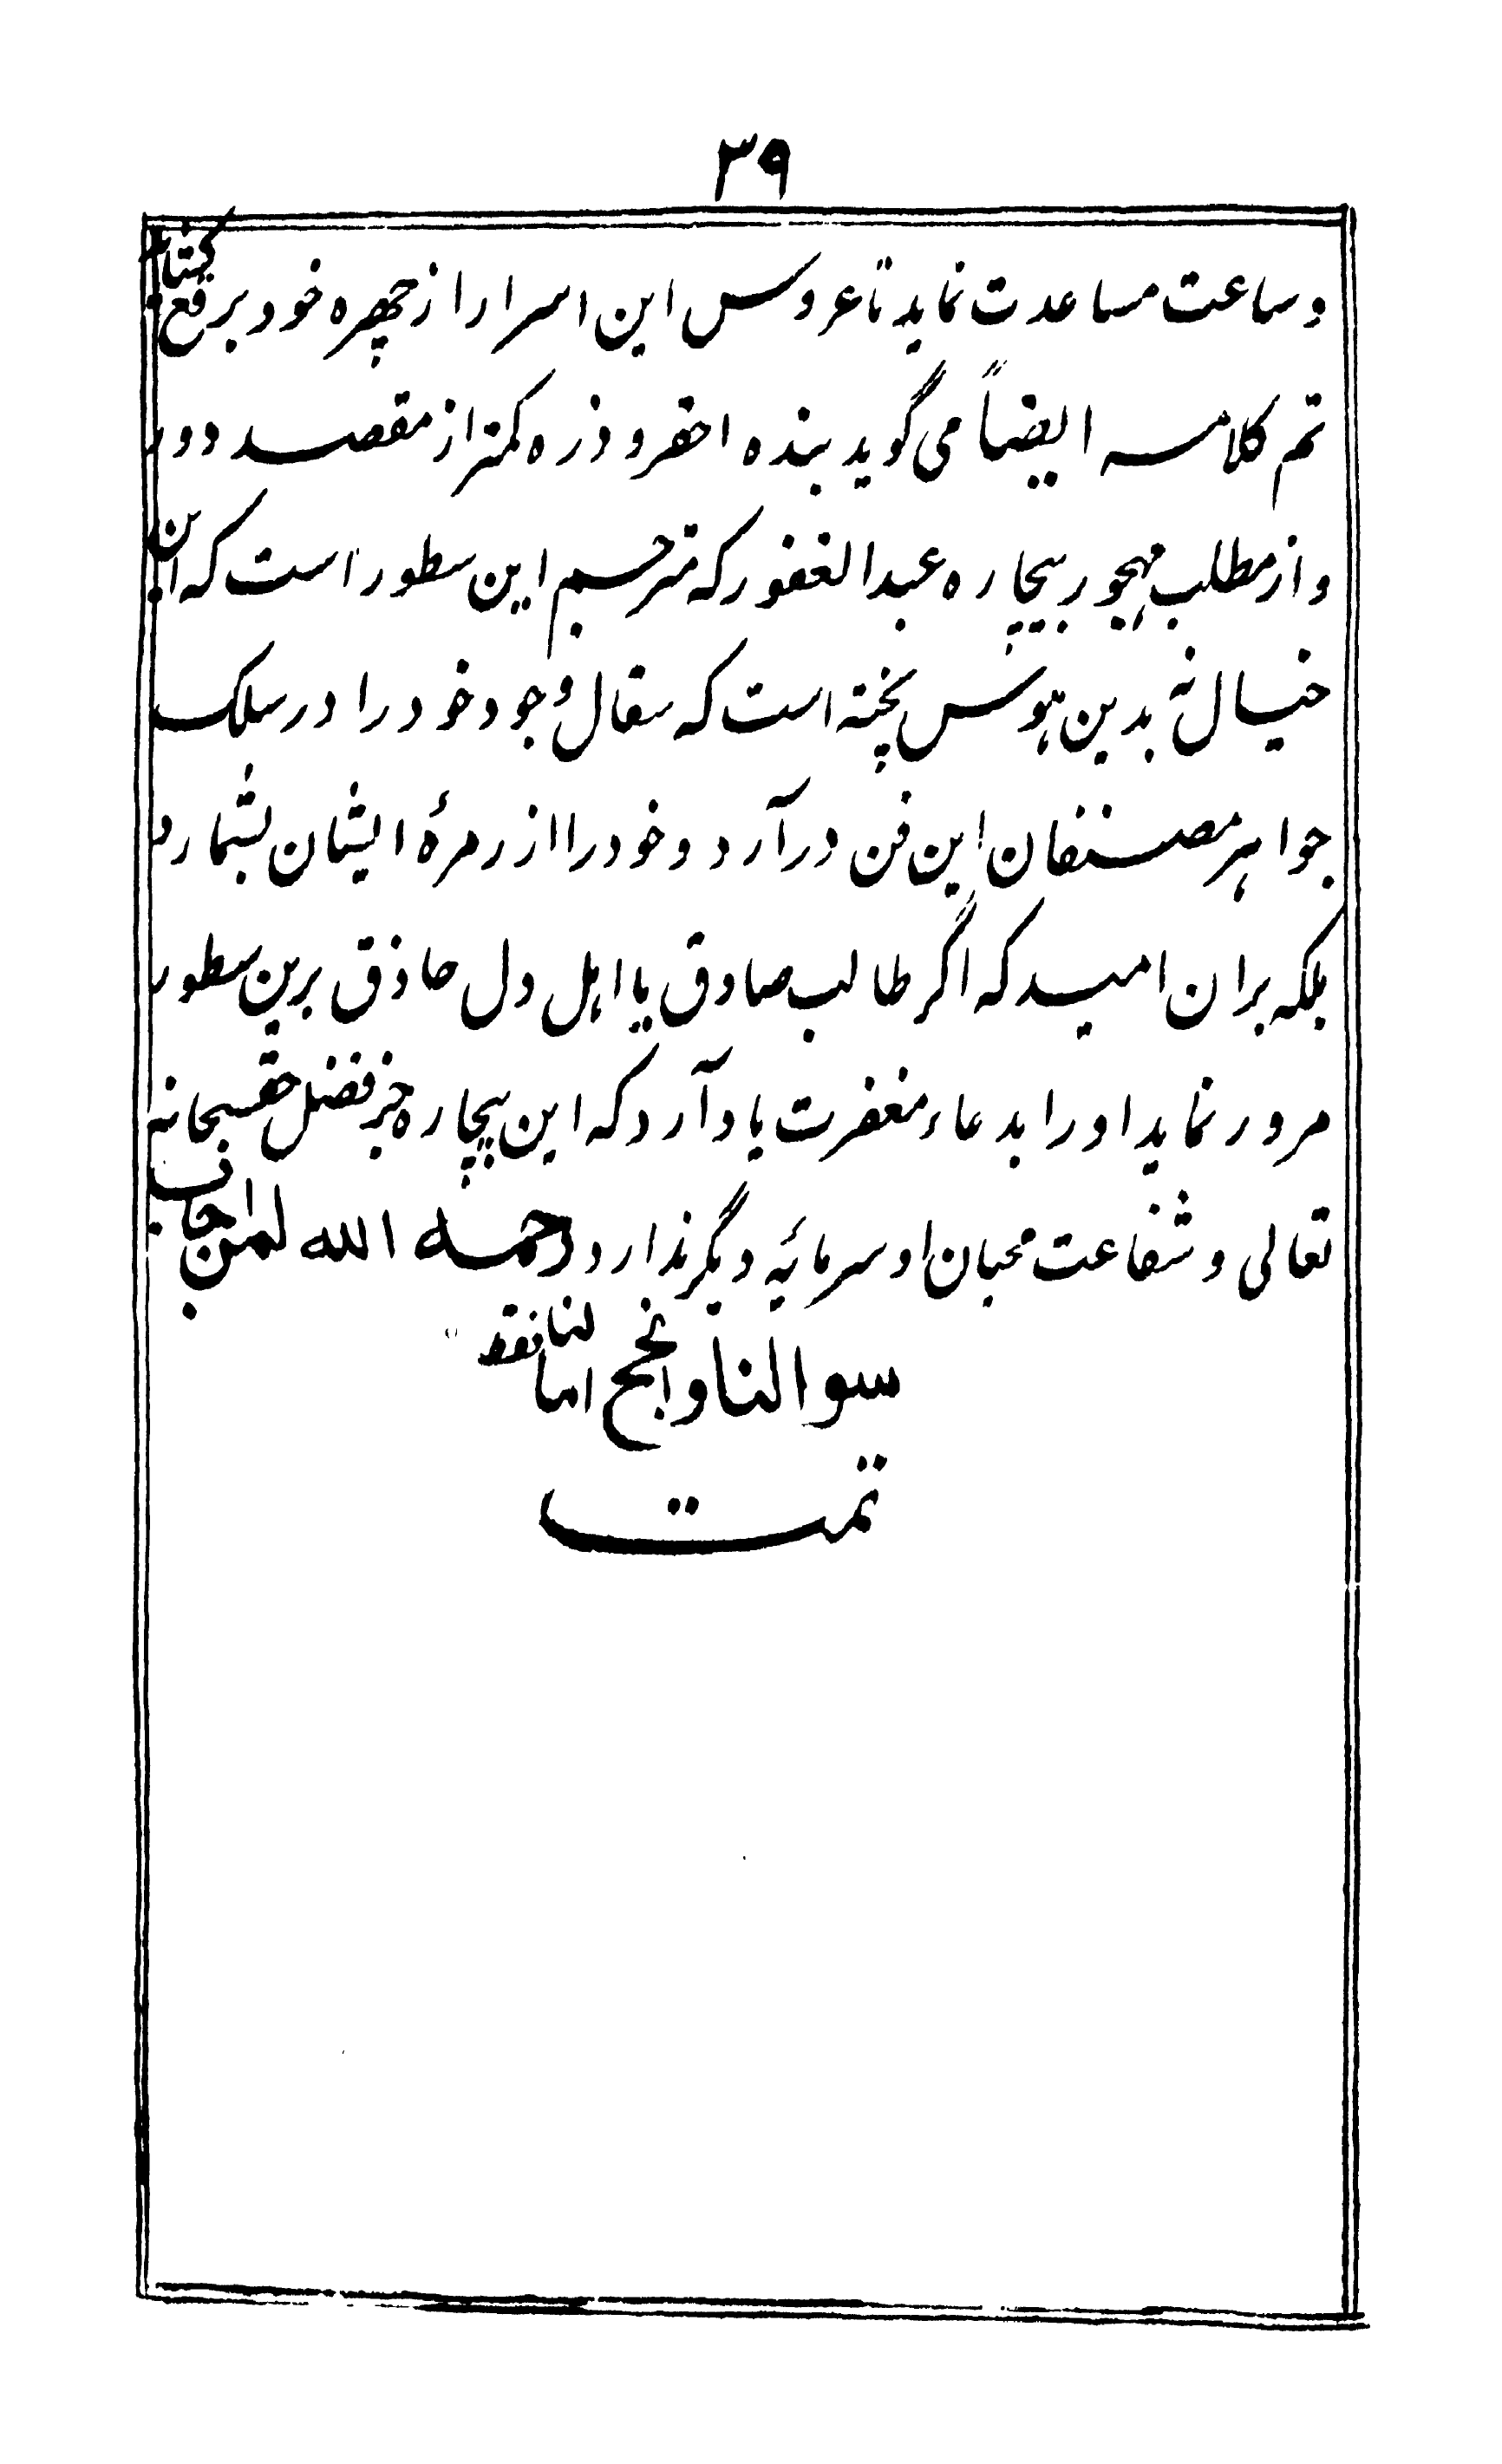 ٣٩
وساعت مساعدت نماید تا عروس این اسرار از چهره خود برقع بکشاید
تم کلامه ایضاً می گوید بنده احقر و ذره کمتر از مقصد دور
و از مطلب مهجور بیچاره عبدالغفور که مترجم این سطور است که این
خیال نه بدین هوس پخته است که سفال وجود خود را در سلک
جواهر مصنفان این فن در آرد و خود را از زمرهٔ ایشان بشمارد
بلکه بران امید که اگر طالب صادق یا اهل دل حاذق برین سطور
مرور نماید او را بدعاء مغفرت یاد آرد که این بیچاره جز فضل حق سبحانه
تعالی و شفاعت محبان او سرمائه دیگر ندارد رحمه الله لمن اجاب
سوالنا و انجح امالنا فقط
تمت